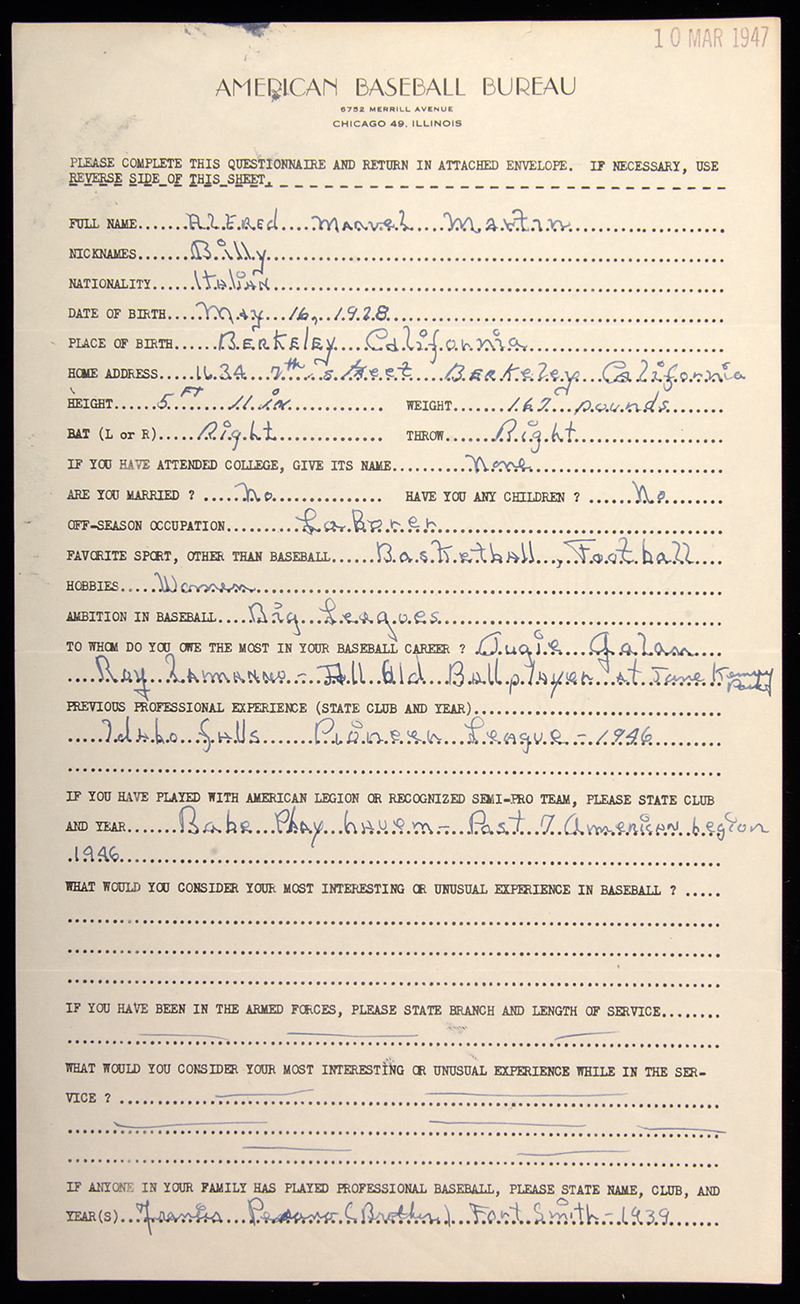 10 MAR 1947
AMERICAN BASEBALL BUREAU
6752 MERRILL AVENUE
CHICAGO 49, ILLINOIS
PLEASE COMPLETE THIS QUESTIONNAIRE AND RETURN IN ATTACHED ENVELOPE. IF NECESSARY, USE
REVERSE SIDE OF THIS SHEET.
FULL NAME......Alfred Manuel Martin
NICKNAMES......Billy
NATIONALITY......Italian
DATE OF BIRTH....May 16, 1928
PLACE OF BIRTH......Berkeley California
HOME ADDRESS.....1634 7th Street Berkeley California
HEIGHT......5 FT 11 in WEIGHT.......167 pounds
BAT (L or R).....Right THROW.......Right
IF YOU HAVE ATTENDED COLLEGE, GIVE ITS NAME..........None
ARE YOU MARRIED ? .....No HAVE YOU ANY CHILDREN ? ......No
OFF-SEASON OCCUPATION..........Laborer
FAVORITE SPORT, OTHER THAN BASEBALL......Basketball, Football
HOBBIES.....Women
AMBITION IN BASEBALL....Big Leagues
TO WHOM DO YOU OWE THE MOST IN YOUR BASEBALL CAREER ? Augie Galan
Ray Lamanno - All Old Ball player at Jame Kenney Park
PREVIOUS PROFESSIONAL EXPERIENCE (STATE CLUB AND YEAR)
Idaho falls Pioneer League - 1946
IF YOU HAVE PLAYED WITH AMERICAN LEGION OR RECOGNIZED SEMI-PRO TEAM, PLEASE STATE CLUB
AND YEAR.......Babe Phay - Post 7 American Legion
1946
WHAT WOULD YOU CONSIDER YOUR MOST INTERESTING OR UNUSUAL EXPERIENCE IN BASEBALL ? .....
IF YOU HAVE BEEN IN THE ARMED FORCES, PLEASE STATE BRANCH AND LENGTH OF SERVICE........
WHAT WOULD YOU CONSIDER YOUR MOST INTERESTING OR UNUSUAL EXPERIENCE WHILE IN THE SER-
VICE ?
IF ANYONE IN YOUR FAMILY HAS PLAYED PROFESSIONAL BASEBALL, PLEASE STATE NAME, CLUB, AND
YEAR(S)...Francis Pesano (Brother) Fort Smith - 1939